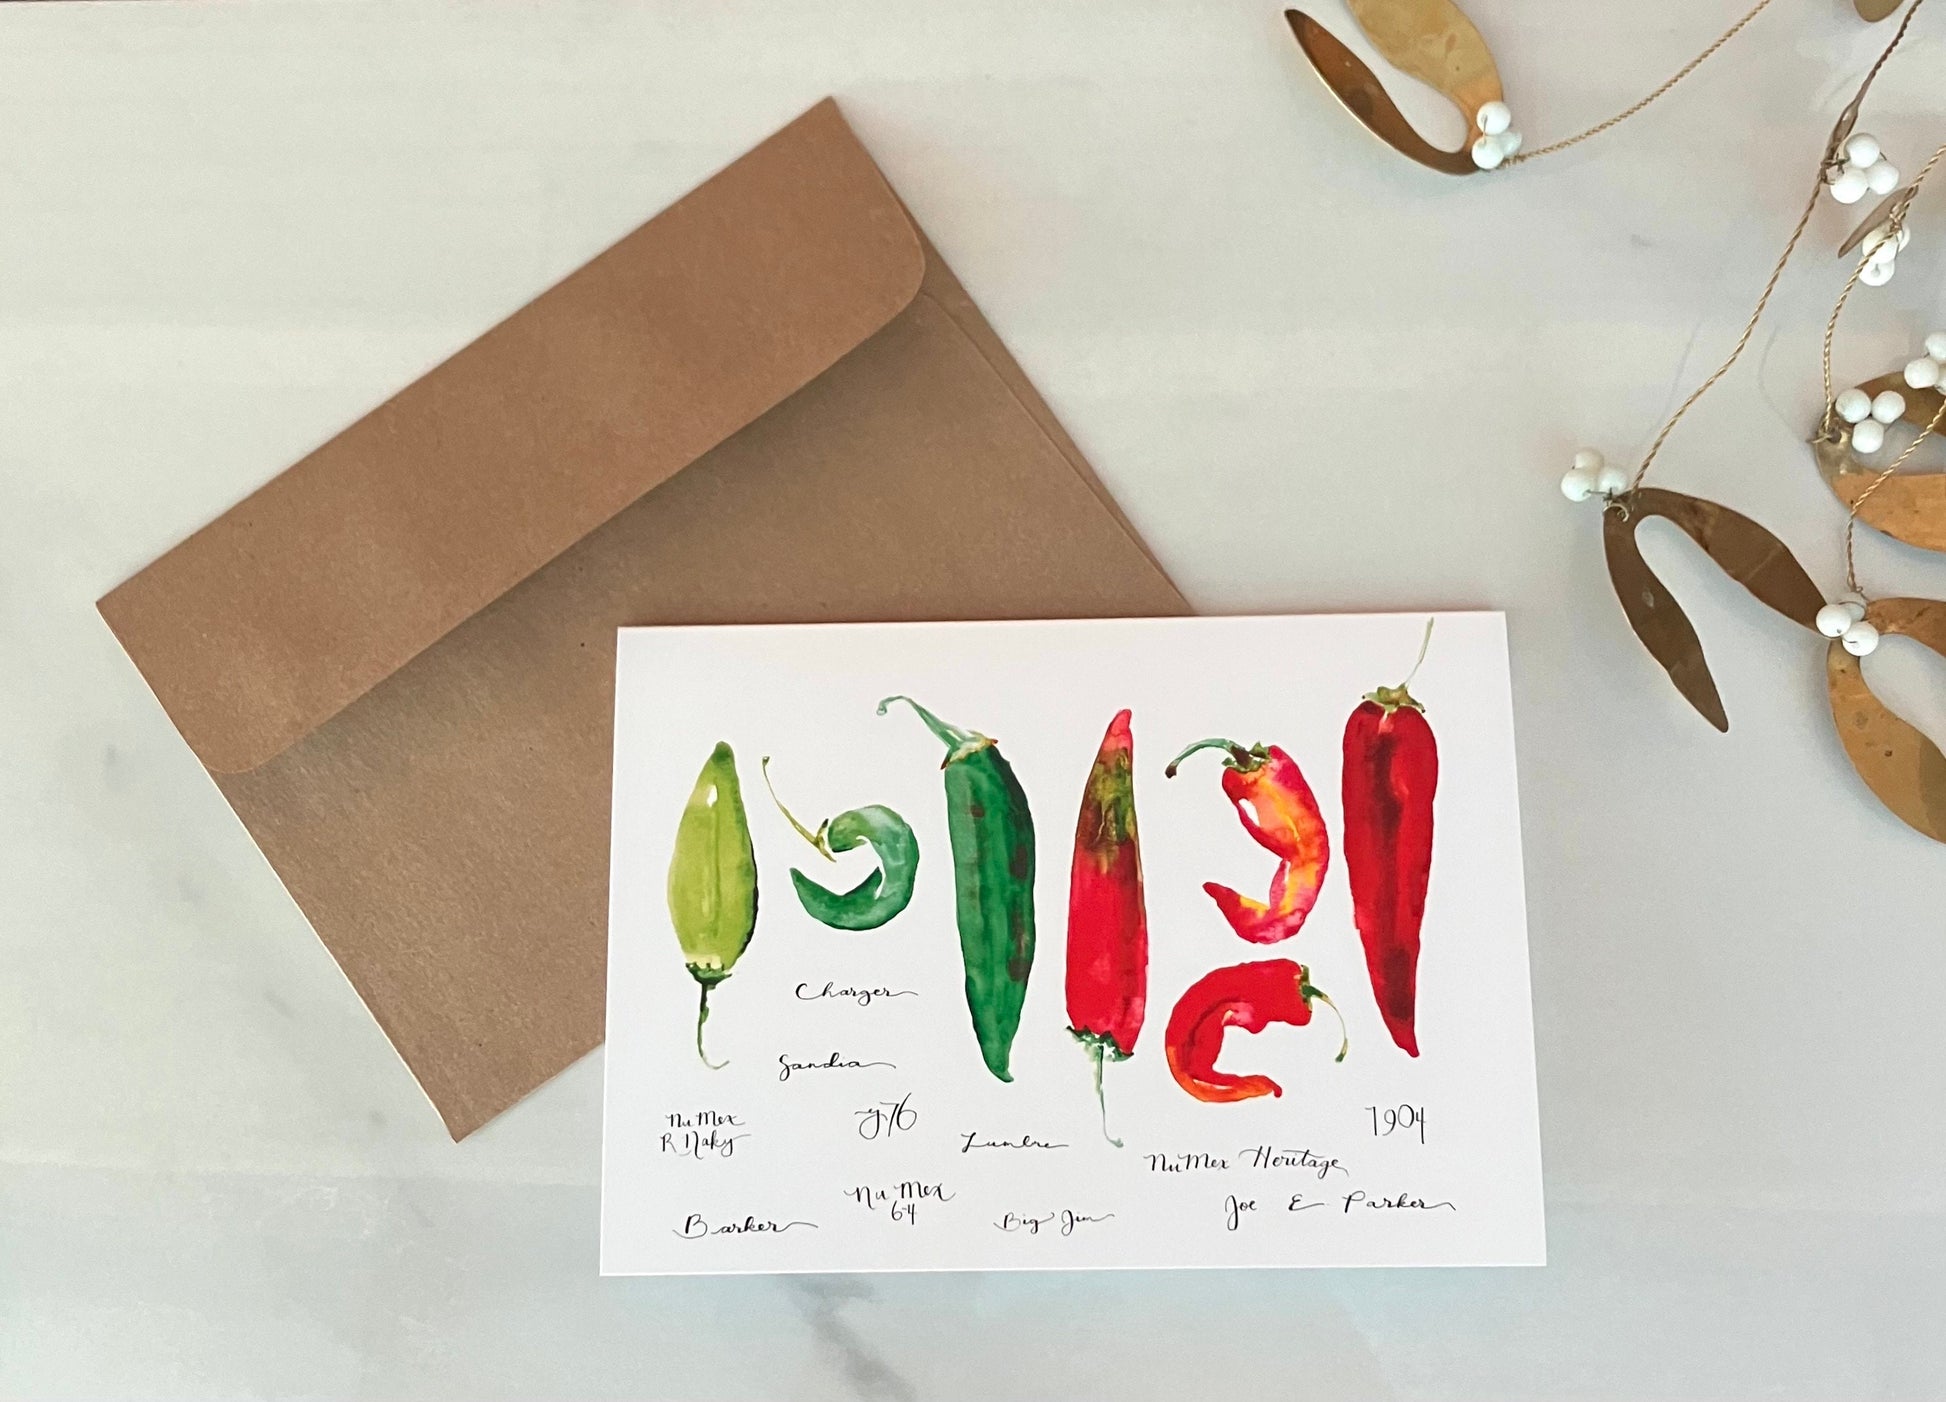 Charger
Sandia
NuMex
R Naky
y76
Lumbre
1904
NuMex Heritage
Barker
NuMex
6-4
Big Jim
Joe E Parker